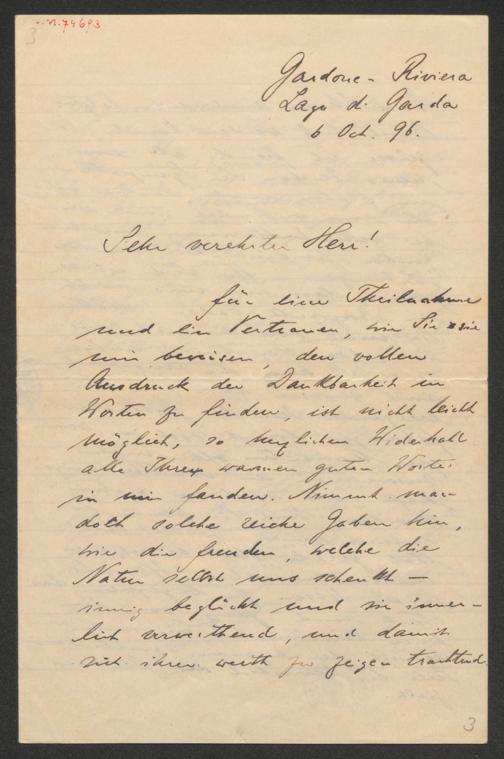 3
N. 74693
Gardone - Riviera
Lago di Garda
6 Oct. 96.
Sehr verehrter Herr!
für eine Theilnahme
und ein Vertrauen, wie Sie sie
mir beweisen, den vollen
Ausdruck der Dankbarkeit in
Worten zu finden, ist nicht leicht
möglich, so herzlichen Widerhall
alle Ihre warmen guten Worte
in mir fanden. Nimmt man
doch solche reiche Gaben hin,
wie die Freuden, welche die
Natur selbst uns schenkt —
innig beglückt und sie inner-
lich verwerthend, und damit
sich ihrer werth zu zeigen trachtend
3